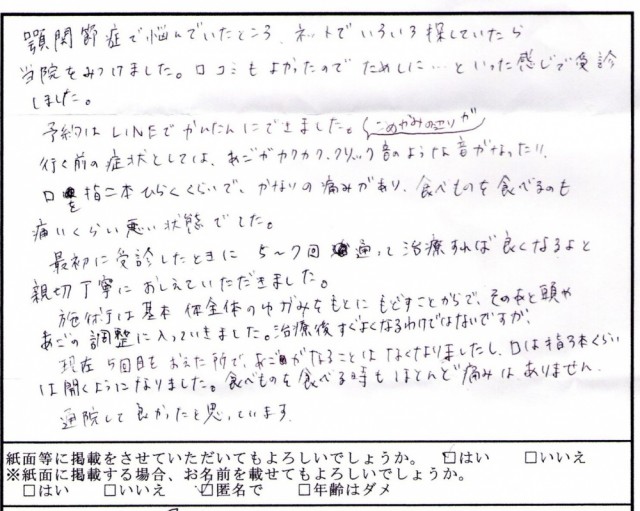 顎関節症で悩んでいたところ、ネットでいろいろ探していたら
当院をみつけました。口コミもよかったのでためしに…といった感じで受診
しました。
予約はLINEでかんたんにできました。(こめかみの辺りが
行く前の症状としては、あごがカクカク、クリック音のような音がなったり、
口を指二本ひらくくらいで、かなりの痛みがあり、食べものを食べるのも
痛いくらい悪い状態でした。
最初に受診したときに5〜7回通って治療すれば良くなるよと
親切丁寧におしえていただきました。
施術は基本体全体のゆがみをもとにもどすことからで、そのあと頭や
あごの調整に入っていきました。治療後すぐよくなるわけではないですが、
現在5回目もおえた所で、あごがなることはなくなりましたし、口は指3本くらい
は開くようになりました。食べものを食べる時もほとんど痛みはありません。
通院して良かったと思っています。
紙面等に掲載をさせていただいてもよろしいでしょうか。 ☑はい □いいえ
※紙面に掲載する場合、お名前を載せてもよろしいでしょうか。
□はい □いいえ ☑匿名で □年齢はダメ